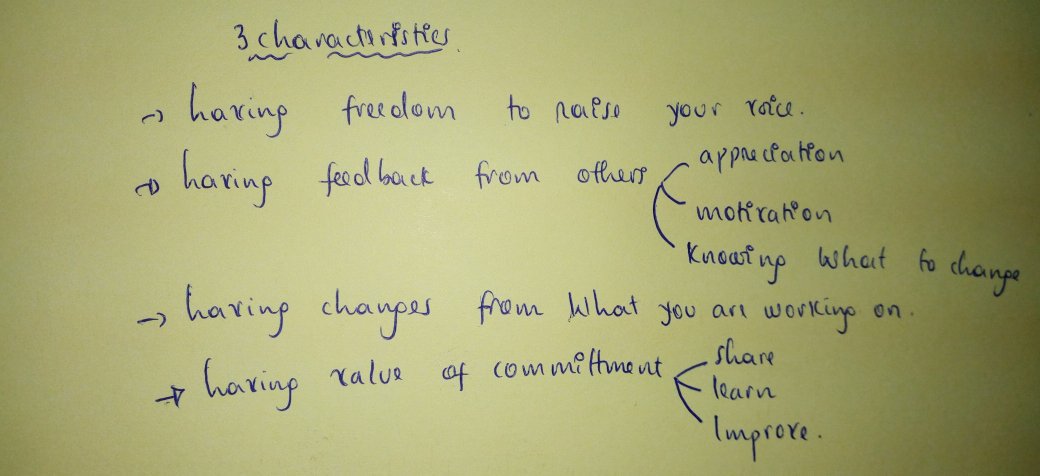 3 characteristics.
→ having freedom to raise your voice.
→ having feedback from others
appreciation
motivation
Knowing What to change
→ having changes from What you are working on.
→ having value of committment
share
learn
Improve.